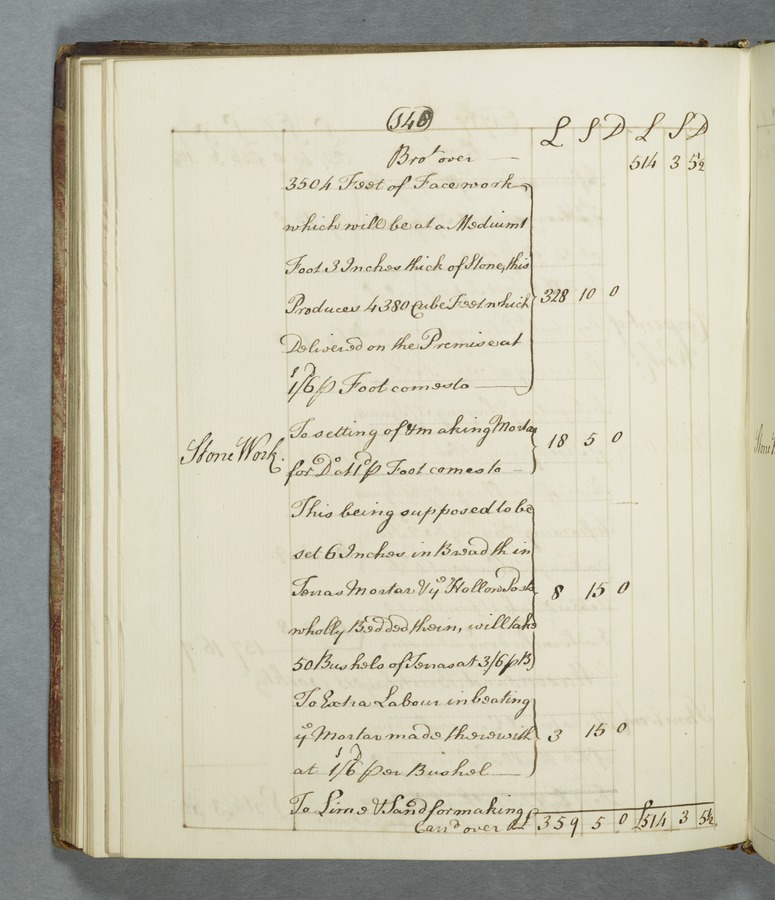 146
L S D L S D
Brot over 514 3 5½
3504 Feet of Face work
which will be at a Medium 1
Foot 3 Inches thick of Stone, this
Produces 4380 Cube Feet which 328 10 0
Delivered on the Premise at
1s/6D p Foot comes to
To setting of & making Mortar 18 5 0
Stone Work. for Do at 1D p Foot comes to
This being supposed to be
set 6 Inches in Breadth in
Terras Mortar & ye Hollow 8 15 0
wholly Bedded therin, will take
50 Bushels of Terras at 3/6 p B
To Extra Labour in beating
ye Mortar made therewith 3 15 0
at 1s/6D per Bushel
To Lime & Sand for making
Carrd over £ 359 5 0 £514 3 5½